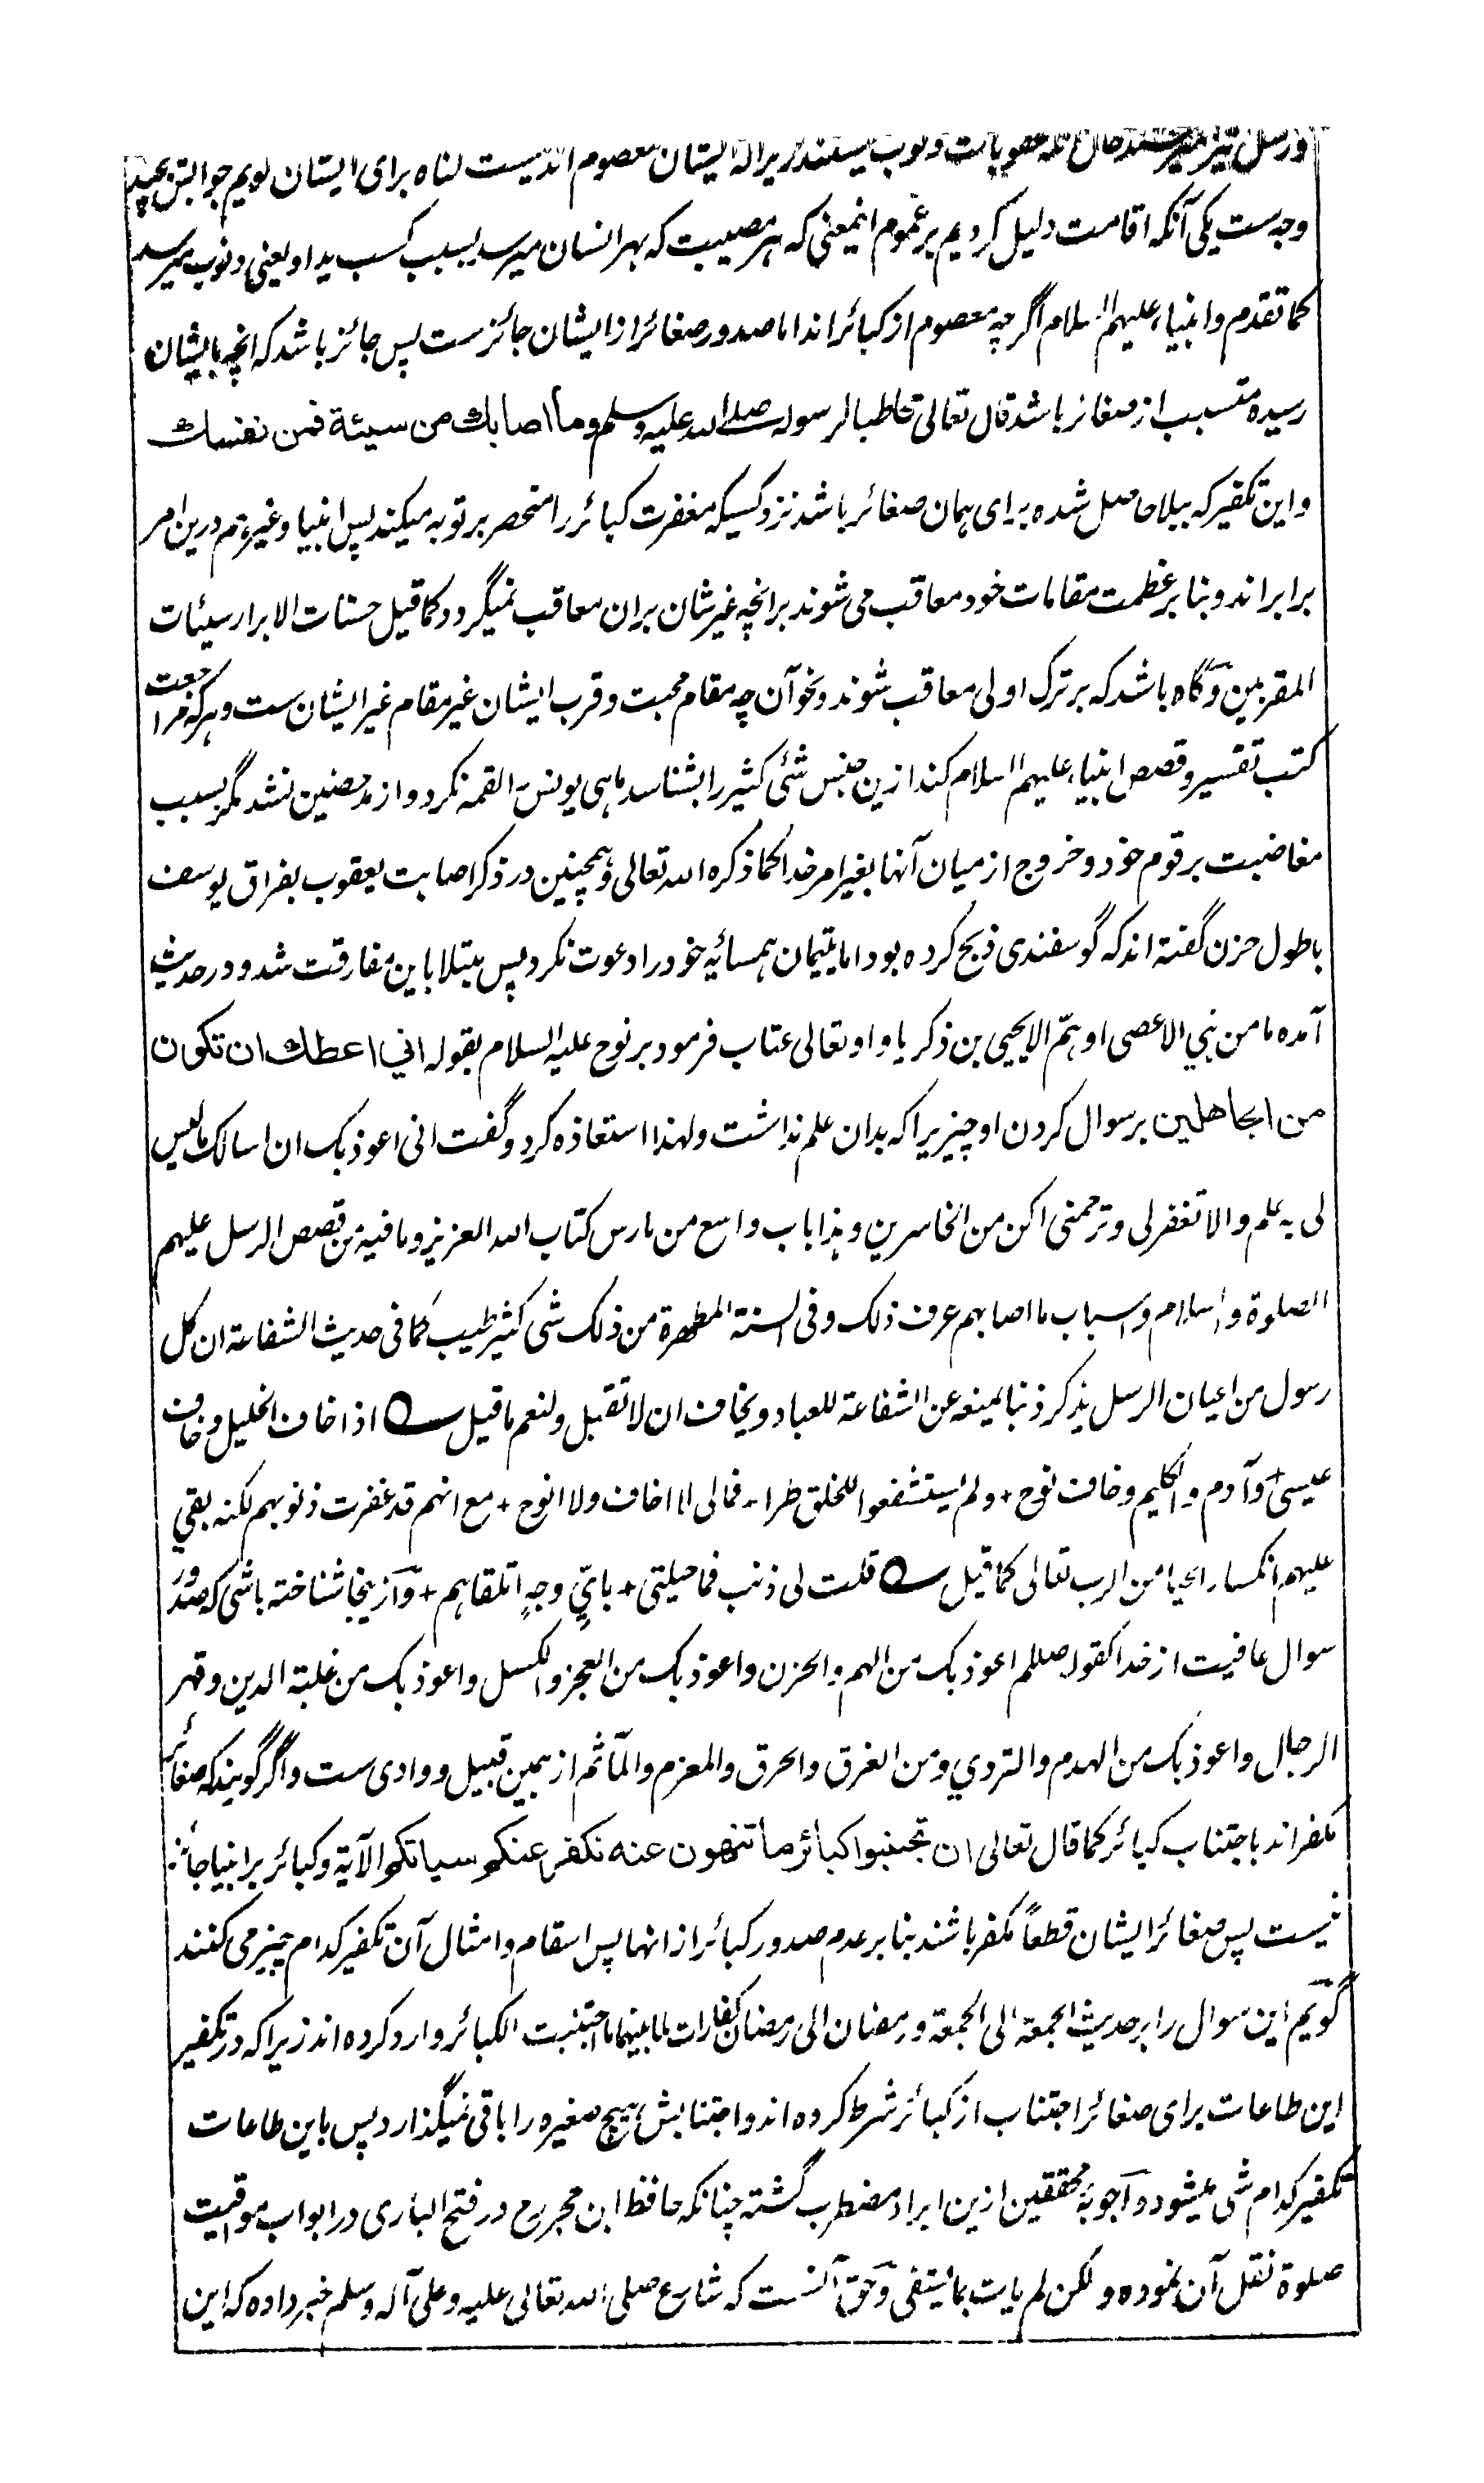 ورسل نیز میرسند حال آنکه عقوبات ذنوب نیستند زیراکه ایشان معصوم اند نیست گناه برای ایشان گویم جوابش بچند
وجه ست یکی آنکه اقامت دلیل کردیم بر عموم اینمعنی که هر مصیبت که بهر انسان میرسد بسبب کسب ید او یعنی ذنوب میرسد
کما تقدم وانبیاء علیهم السلام اگرچه معصوم از کبائر اند اما صدور صغائر از ایشان جائز ست پس جائز باشد که انچه بایشان
رسیده متسبب از صغائر باشد قال تعالی مخاطبا لرسوله صلی الله علیه وسلم وما اصابك من سیئة فمن نفسك
واین تکفیر که ببلا حاصل شده برای همان صغائر باشد نزد کسیکه مغفرت کبائر را منحصر بر توبه میکند پس انبیا وغیرهم درین امر
برابر اند وبنا بر عظمت مقامات خود معاقب می شوند برانچه غیرشان بران معاقب نمیگردد کما قیل حسنات الابرار سیئات
المقربین وگاه باشد که بر ترک اولی معاقب شوند ونحو آن چه مقام محبت وقرب ایشان غیر مقام غیر ایشان ست وهر که مراجعت
کتب تفسیر وقصص انبیاء علیهم السلام کند ازین جنس شئی کثیر را بشناسد ماهی یونس را لقمه نکرد واز مدحضین نشد مگر بسبب
مغاضبت بر قوم خود وخروج از میان آنها بغیر امر خدا کما ذکره الله تعالی وهمچنین در ذکر اصابت یعقوب بفراق یوسف
باطول حزن گفته اند که گوسفندی ذبح کرده بود اما یتیمان همسائیه خود را دعوت نکرد پس مبتلا باین مفارقت شد ودر حدیث
آمده ما من نبي الا عصی او همّ الا یحیی بن زکریا واو تعالی عتاب فرمود بر نوح علیه السلام بقوله اني اعظك ان تکون
من الجاهلین بر سوال کردن او چیزیرا که بدان علم نداشت ولهذا استعاذه کرد وگفت انی اعوذ بک ان اسالک ما لیس
لی به علم والا تغفر لی وترحمنی اکن من الخاسرین وهذا باب واسع من مارس کتاب الله العزیز وما فیه من قصص الرسل علیهم
الصلوة والسلام واسباب ما اصابهم عرف ذلک وفی السنة المطهرة من ذلک شی کثیر طیب کما فی حدیث الشفاعة ان کل
رسول من اعیان الرسل یذکر ذنبا یمنعه عن الشفاعة للعباد ویخاف ان لا تقبل ولنعم ما قیل ؎ اذا خاف الخلیل وخاف
عیسی + وآدم والکلیم وخاف نوح + ولم یستشفعوا للخلق طرا - فما لی لا اخاف ولا انوح + مع انهم قد غفرت ذنوبهم لکنه بقي
علیهم انکسار الحیا من الرب تعالی کما قیل ؎ قلت لی ذنب فما حیلتی + بايِّ وجهٍ اتلقاهم + وازینجا شناخته باشی که صدور
سوال عافیت از خدا کقوله صللم اعوذ بک من الهم والحزن واعوذ بک من العجز والکسل واعوذ بک من غلبة الدین وقهر
الرجال واعوذ بک من الهدم والتردي ومن الغرق والحرق والمغرم والمآثم از همین قبیل ووادی ست واگر گویند که صغائر
مکفر اند باجتناب کبائر کما قال تعالی ان تجتنبوا کبائر ما تنهون عنه نکفر عنکم سیاتکم الآیة وکبائر بر انبیا جائز
نیست پس صغائر ایشان قطعاً مکفر باشند بنا بر عدم صدور کبائر از انها پس اسقام وامثال آن تکفیر کدام چیز می کنند
گویم این سوال را بر حدیث الجمعة الی الجمعة ورمضان الی رمضان کفارات لما بینهما ما اجتنبت الکبائر وارد کرده اند زیراکه در تکفیر
این طاعات برای صغائر اجتناب از کبائر شرط کرده اند واجتنابش هیچ صغیره را باقی نمیگذارد پس باین طاعات
تکفیر کدام شی میشود واجوبۀ محققین ازین ایراد مضطرب گشته چنانکه حافظ ابن حجر رح در فتح الباری در ابواب مواقیت
صلوة نقل آن نموده ولکن لم یات بما یشفی وحق آنست که شارع صلی الله تعالی علیه وعلی آله وسلم خبر داده که این